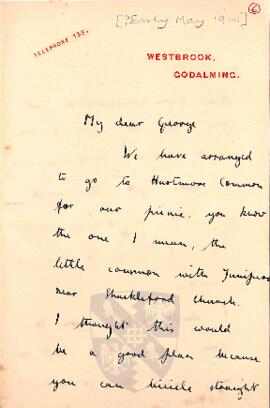 6
[?Early May 1914]
TELEPHONE 133.
WESTBROOK,
GODALMING.
My dear George
We have arranged
to go to Hurtmore Common
for our picnic, you know
the one I mean, the
little common with Junipers
near Shackleford Church.
I thought this would
be a good plan because
you can bicicle straight